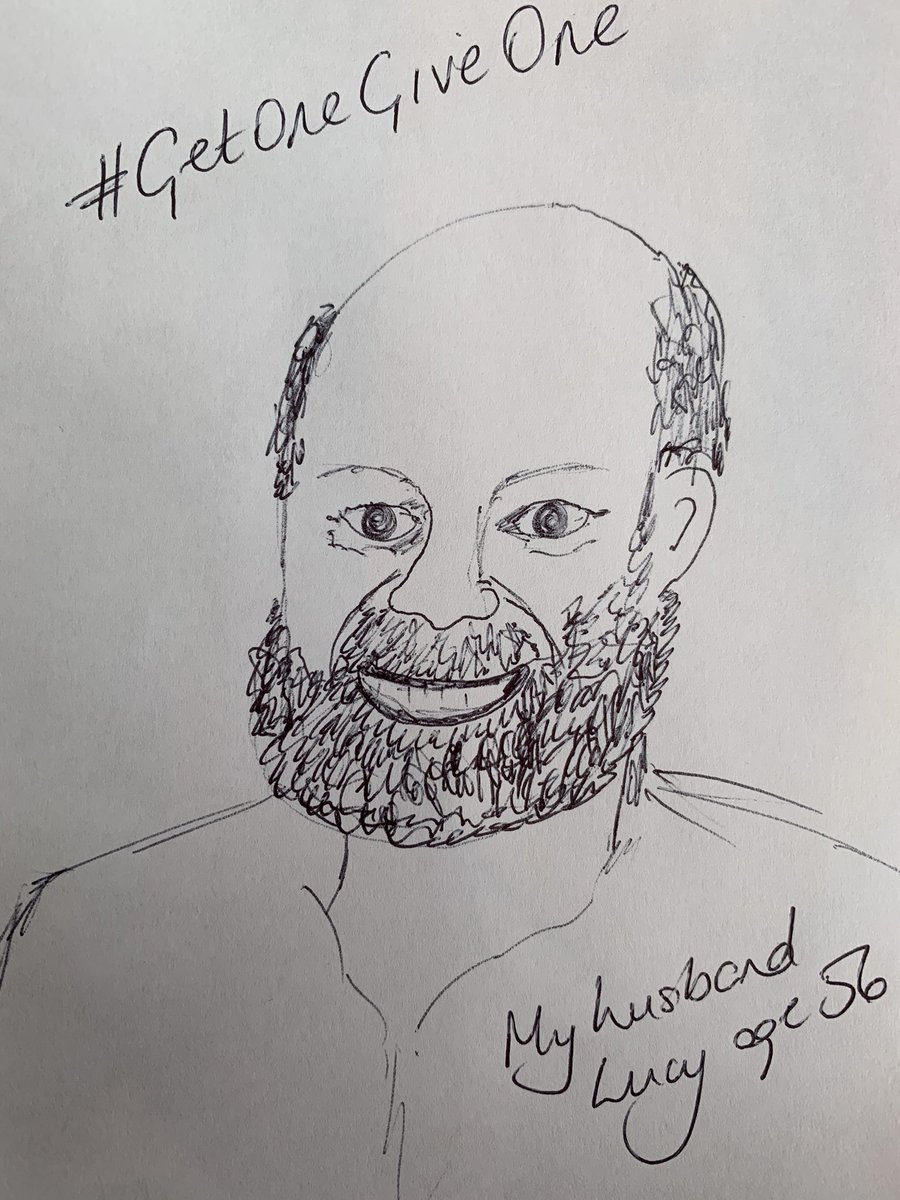 #GetOneGiveOne
My husband
Lucy age 56